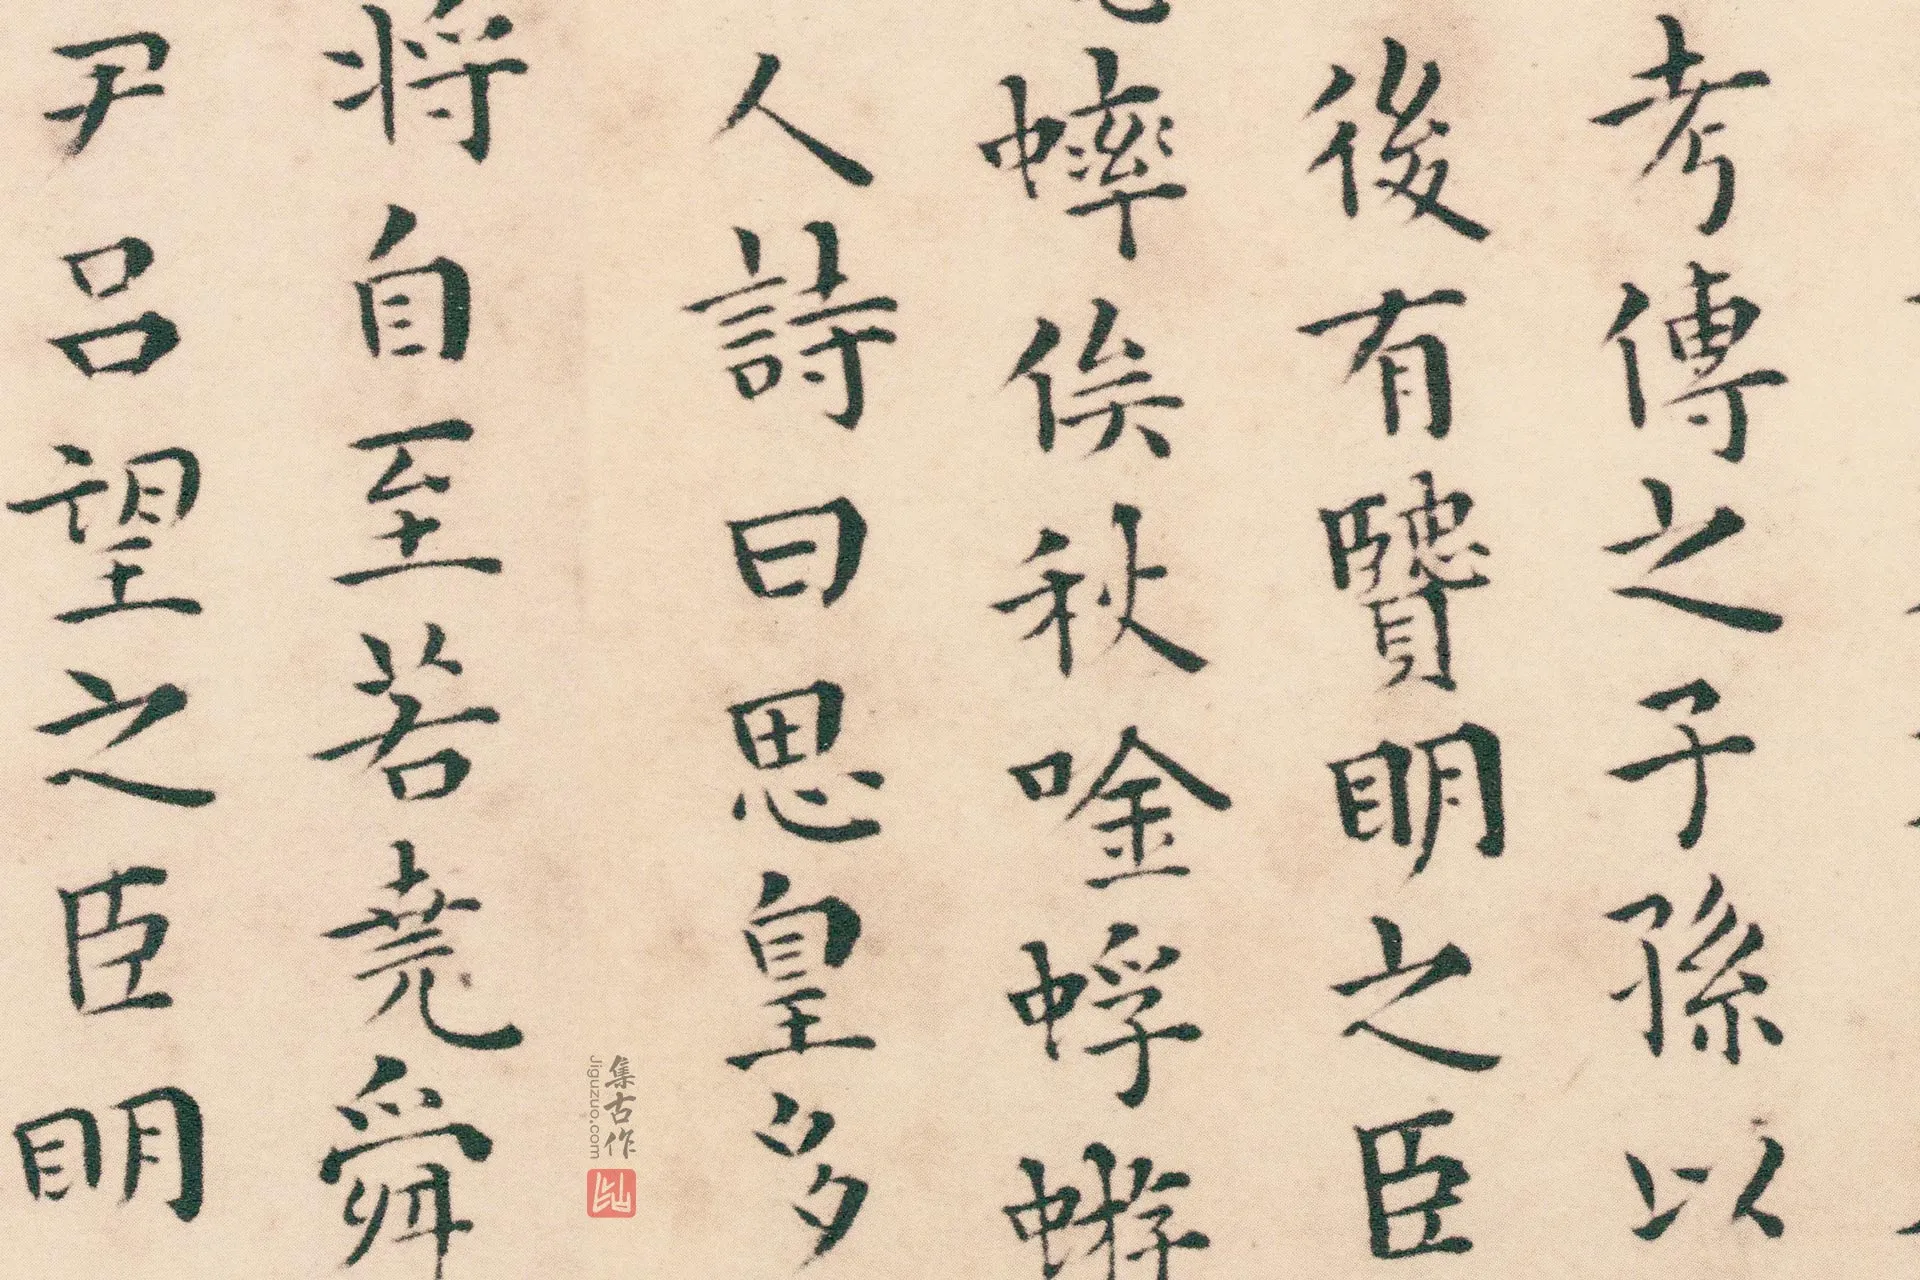 考傳之子孫以
後有贒眀之臣
蟀俟秋唫蜉蝣
人詩曰思皇多
将自至若堯舜
尹吕望之臣眀
集古作
Jiguzuo.com